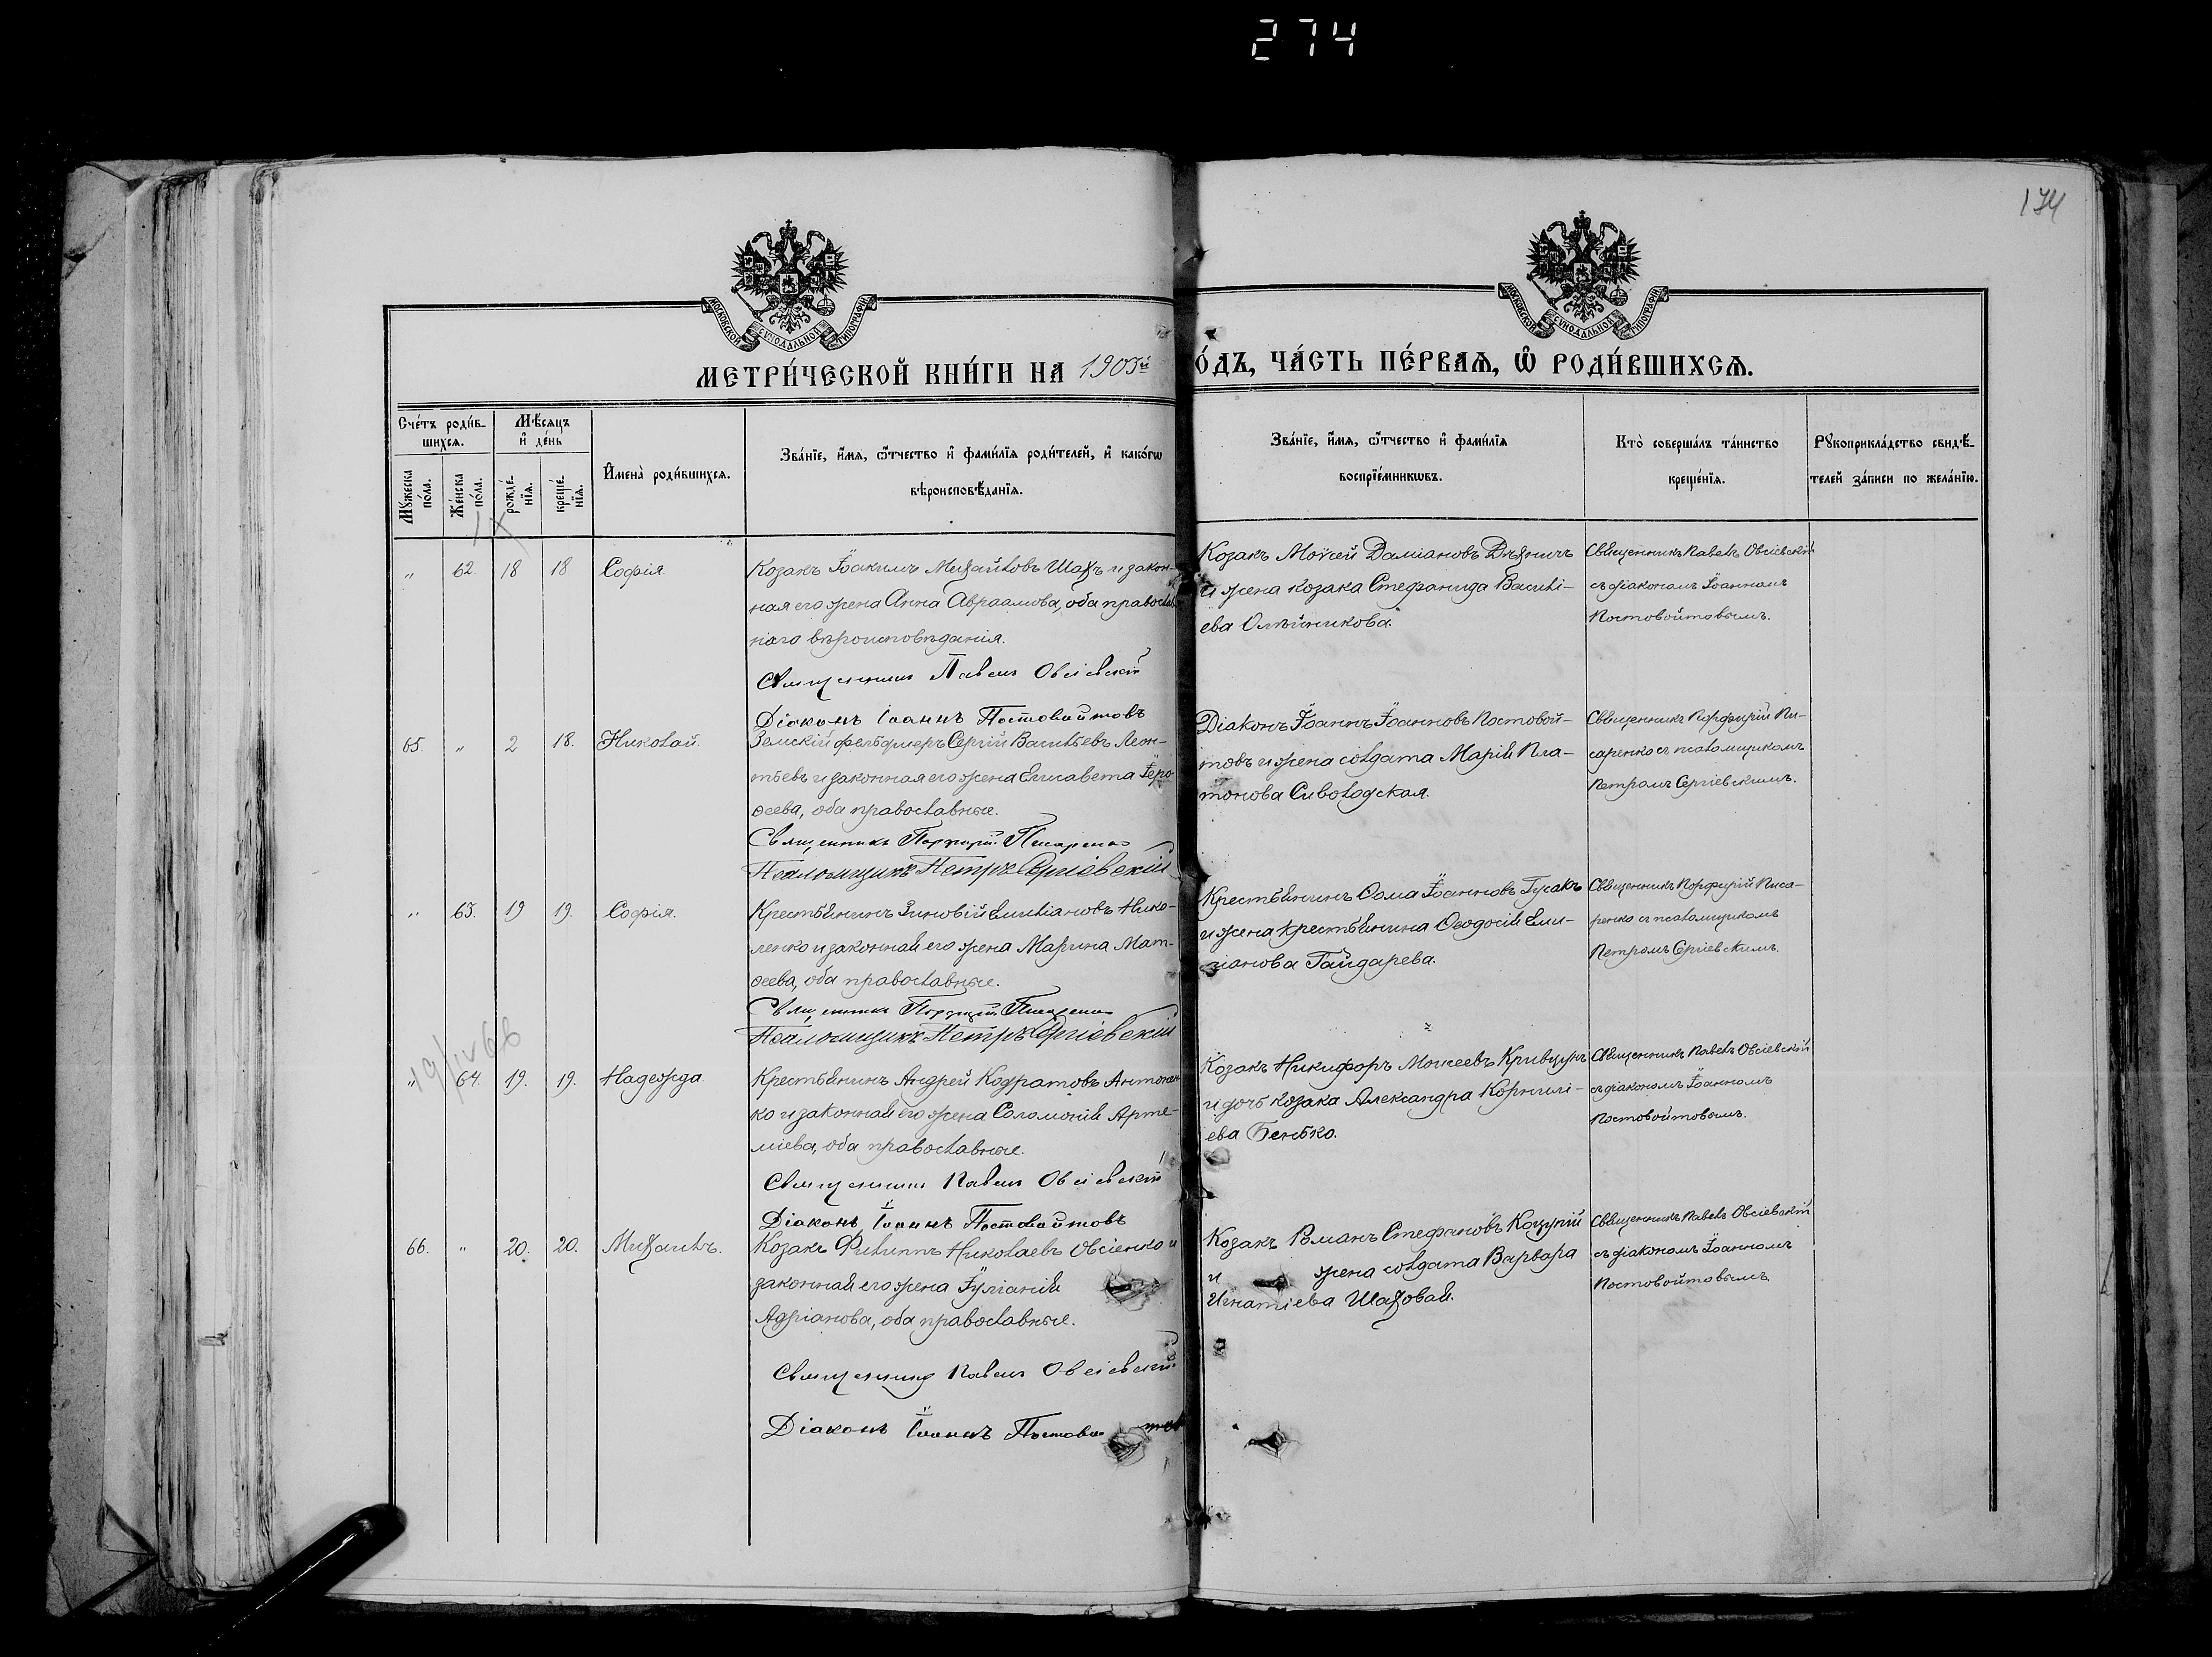 274
174
МОСКОВСКОЙ СѴНОДАЛЬНОЙ ТИПОГРАФІИ
МОСКОВСКОЙ СѴНОДАЛЬНОЙ ТИПОГРАФІИ
МЕТРИ́ЧЕСКОЙ КНИ́ГИ НА 1905й
О́ДЪ, ЧА́СТЬ ПЕ́РВАѦ, Ѡ҆ РОДИ́ВШИХСѦ.
Сче́тъ роди́в-
шихсѧ.
Мѣ́сяцъ
и҆ де́нь
Мꙋ́жеска по́ла.
Же́нска по́ла.
рожде́-нїѧ.
креще́-нїѧ.
И҆мена̀ роди́вшихсѧ.
Зва́нїе, и҆́мѧ, ѻ҆́тчество и҆ фами́лїѧ роди́телей, и҆ како́гѡ
вѣроисповѣ́данїѧ.
Зва́нїе, и҆́мѧ, ѻ҆́тчество и҆ фами́лїѧ
воспрїе́мникѡвъ.
Кто̀ соверша́лъ та́инство
креще́нїѧ.
Рꙋкоприкла́дство свидѣ́-
телей за́писи по жела́нїю.
„ 62. 18 18 Софія.
Козакъ Іоакимъ Михайловъ Шахъ и закон-
ная его жена Анна Авраамова, оба православ
наго вѣроисповѣданія.
Священникъ Павелъ Овсіевскій
Діаконъ Іоаннъ Постовойтовъ
Козакъ Моѵсей Даміановъ
и жена козака Стефанида Василі-
ева Олѣйникова.
Священникъ Павелъ Овсіевскій
съ діакономъ Іоанномъ
Постовойтовымъ.
65. „ 2 18. Николай.
Земскій фельдшеръ Сергій Васильевъ Леон-
тьевъ и законная его жена Елисавета Іеро-
ѳеева, оба православные.
Священникъ Порфирій Писаренко
Псаломщикъ Петръ Сергіевскій
Діаконъ Іоаннъ Іоанновъ Постовой-
товъ и жена солдата Марія Пла-
тонова Сиволодская.
Священникъ Порфирій Пи-
саренко съ псаломщикомъ
Петромъ Сергіевскимъ.
„ 63. 19 19. Софія.
Крестьянинъ Зиновій Емиліановъ Нико-
ленко и законная его жена Марина Мат-
ѳеева, оба православные.
Священникъ Порфирій Писаренко
Псаломщикъ Петръ Сергіевскій
Крестьянинъ Ѳома Іоанновъ Гусакъ
и жена крестьянина Ѳеодосія Еми-
ліанова Гайдарева.
Священникъ Порфирій Писа-
ренко съ псаломщикомъ
Петромъ Сергіевскимъ.
19/IV 66
„ 64. 19. 19. Надежда.
Крестьянинъ Андрей Кодратовъ Антонен
ко и законная его жена Соломонія Арте-
міева, оба православные.
Священникъ Павелъ Овсіевскій
Діаконъ Іоаннъ Постовойтовъ
Козакъ Никифоръ Моисеевъ Кривцунъ
и дочь козака Александра Корнилі-
ева Бенько.
Священникъ Павелъ Овсіевскій
съ діакономъ Іоанномъ
Постовойтовымъ.
66. „ 20. 20. Михаилъ.
Козакъ Филиппъ Николаевъ Овсіенко и
законная его жена Іуліанія
Адріанова, оба православные.
Священникъ Павелъ Овсіевскій
Діаконъ Іоаннъ
Козакъ Романъ Стефановъ Коцупій
и жена солдата Варвара
Игнатіева Шаховая.
Священникъ Павелъ Овсіевскій
съ діакономъ Іоанномъ
Постовойтовымъ